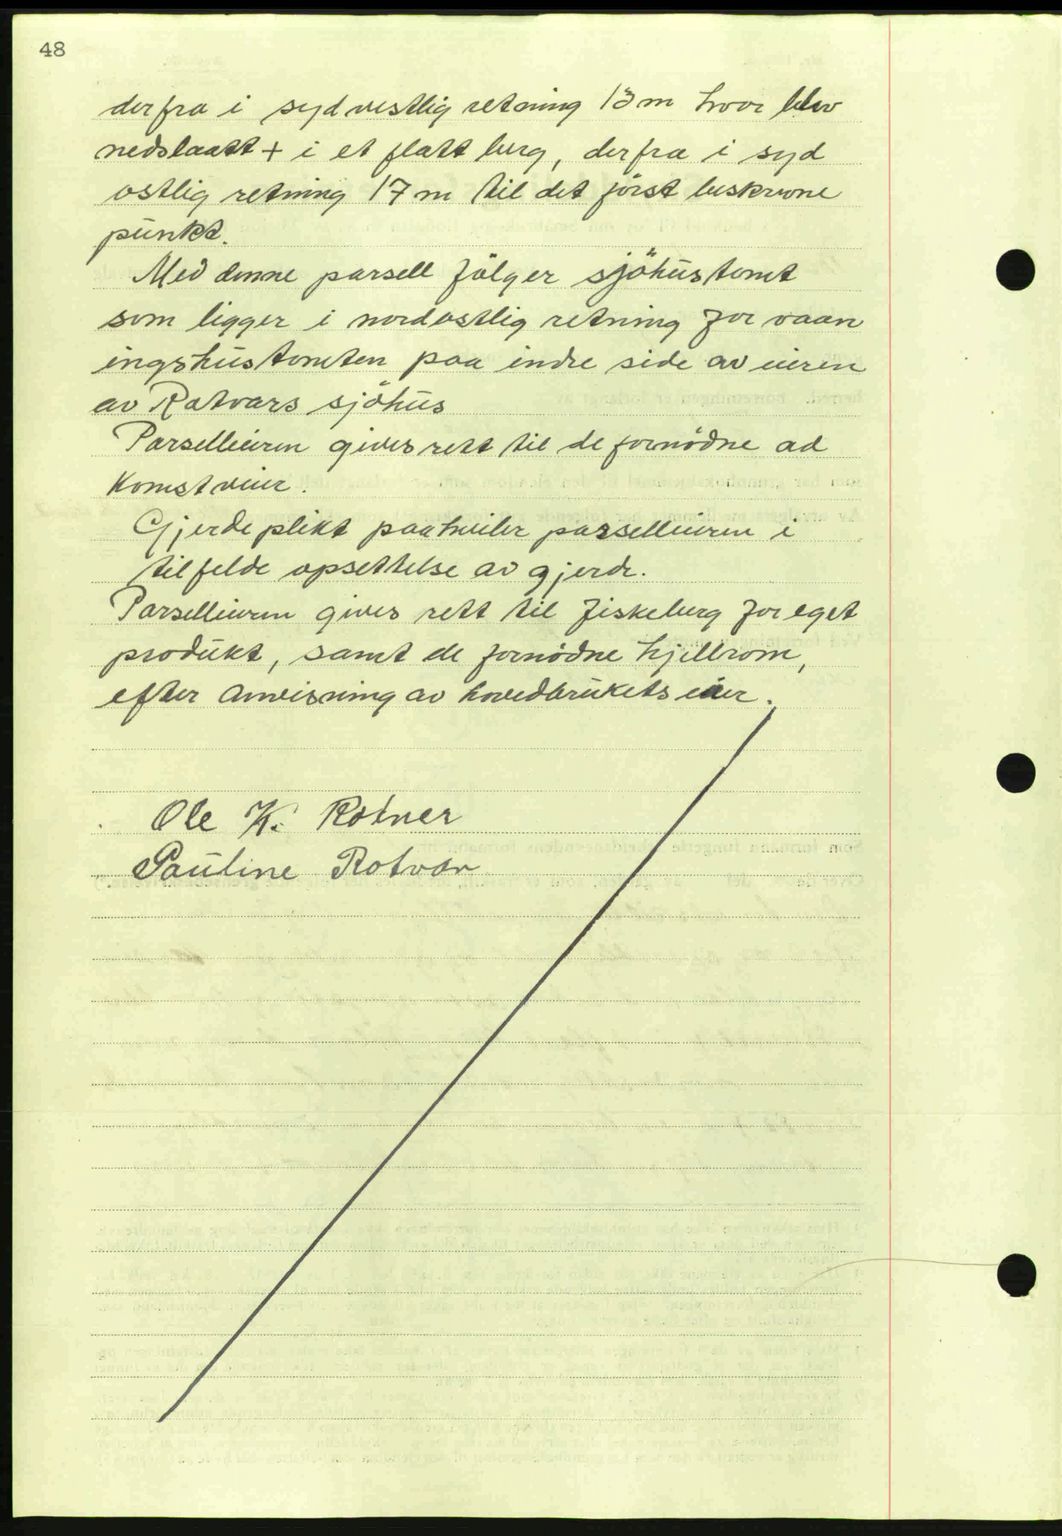 48
derfra i sydvestlig retning 13m hvor blev
nedslaatt + i et flatt berg, derfra i syd
ostlig retning 17m til det först beskrevne
punkt.
Med denne parsell fölger sjöhustomt
som ligger i nordostlig retning for vaan
ingshustomten paa indre side av eieren
av Rotvars sjöhus
Parselleieren gives rett til de fornödne ad
komstveier.
Gjerdeplikt paahviler parselleieren i
tilfelde opsettelse av gjerde.
Parselleieren gives rett til fiskeberg for eget
produkt, samt de fornödne hjellrom,
efter anvisning av hovedbrukets eier.
Ole K. Rotner
Pauline Rotvar